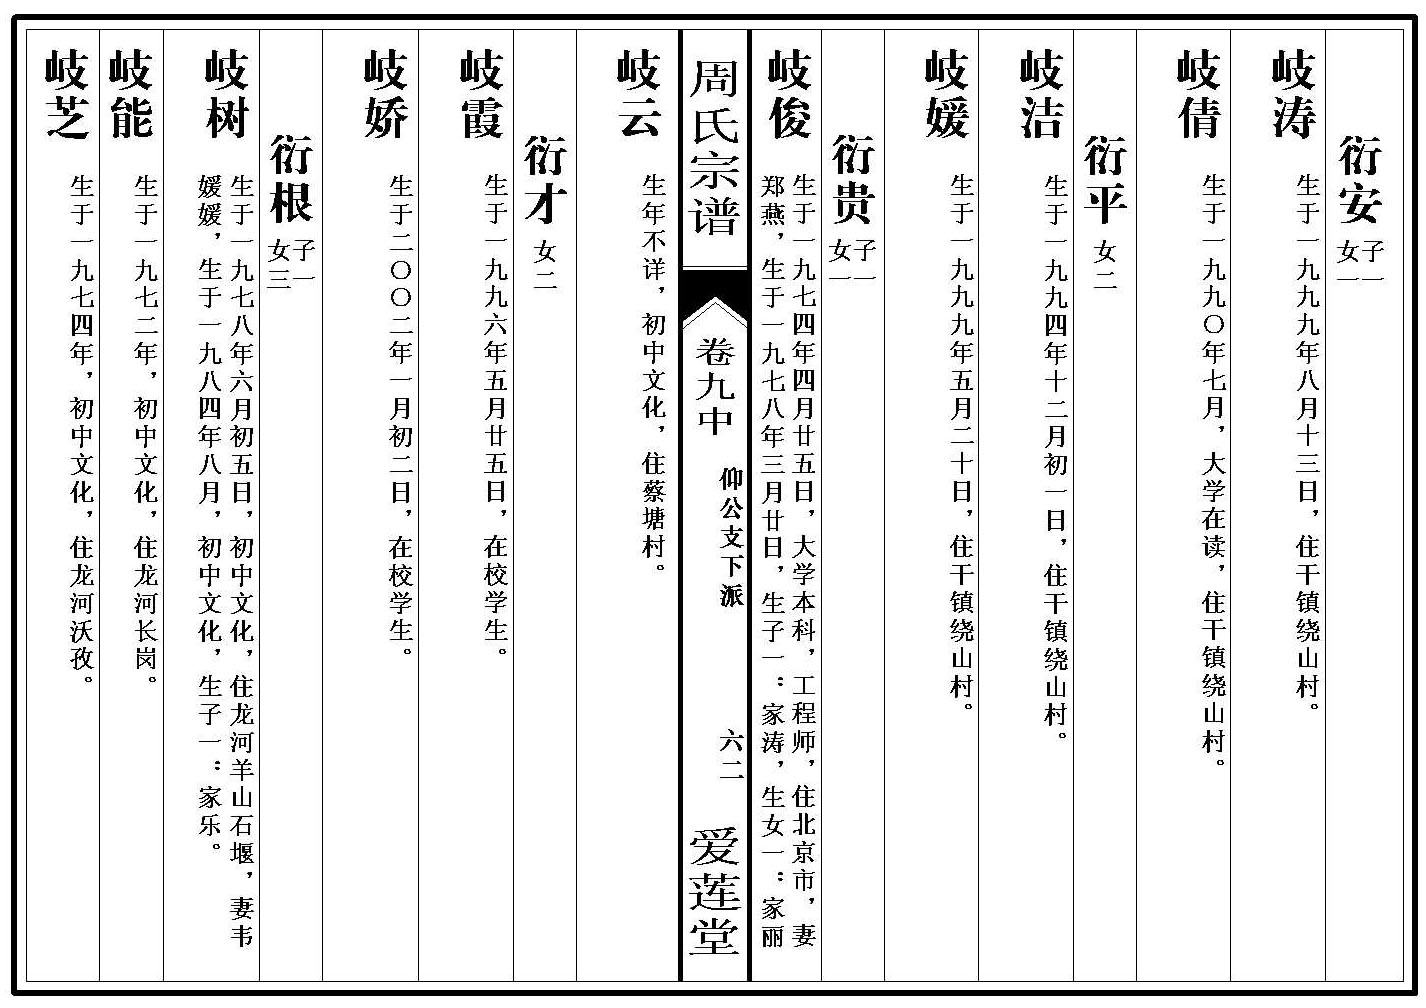 衍安 子一 女一
岐涛 生于一九九九年八月十三日，住干镇绕山村。
岐倩 生于一九九〇年七月，大学在读，住干镇绕山村。
衍平 女二
岐洁 生于一九九四年十二月初一日，住干镇绕山村。
岐媛 生于一九九九年五月二十日，住干镇绕山村。
衍贵 子一 女一
岐俊 生于一九七四年四月廿五日，大学本科，工程师，住北京市，妻
郑燕，生于一九七八年三月廿日，生子一：家涛，生女一：家丽
周氏宗谱 卷九中 仰公支下派 六二 爱莲堂
岐云 生年不详，初中文化，住蔡塘村。
衍才 女二
岐霞 生于一九九六年五月廿五日，在校学生。
岐娇 生于二〇〇二年一月初二日，在校学生。
衍根 子一 女三
岐树 生于一九七八年六月初五日，初中文化，住龙河羊山石堰，妻韦
媛媛，生于一九八四年八月，初中文化，生子一：家乐。
岐能 生于一九七二年，初中文化，住龙河长岗。
岐芝 生于一九七四年，初中文化，住龙河沃孜。